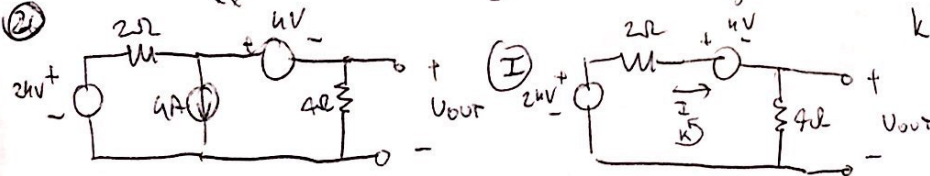 2.
2Ω
4V
+ -
24V
+
-
4A
4Ω
+
UOUT
-
I
2Ω
4V
+ -
24V
+
-
I
K
4Ω
+
UOUT
-
k